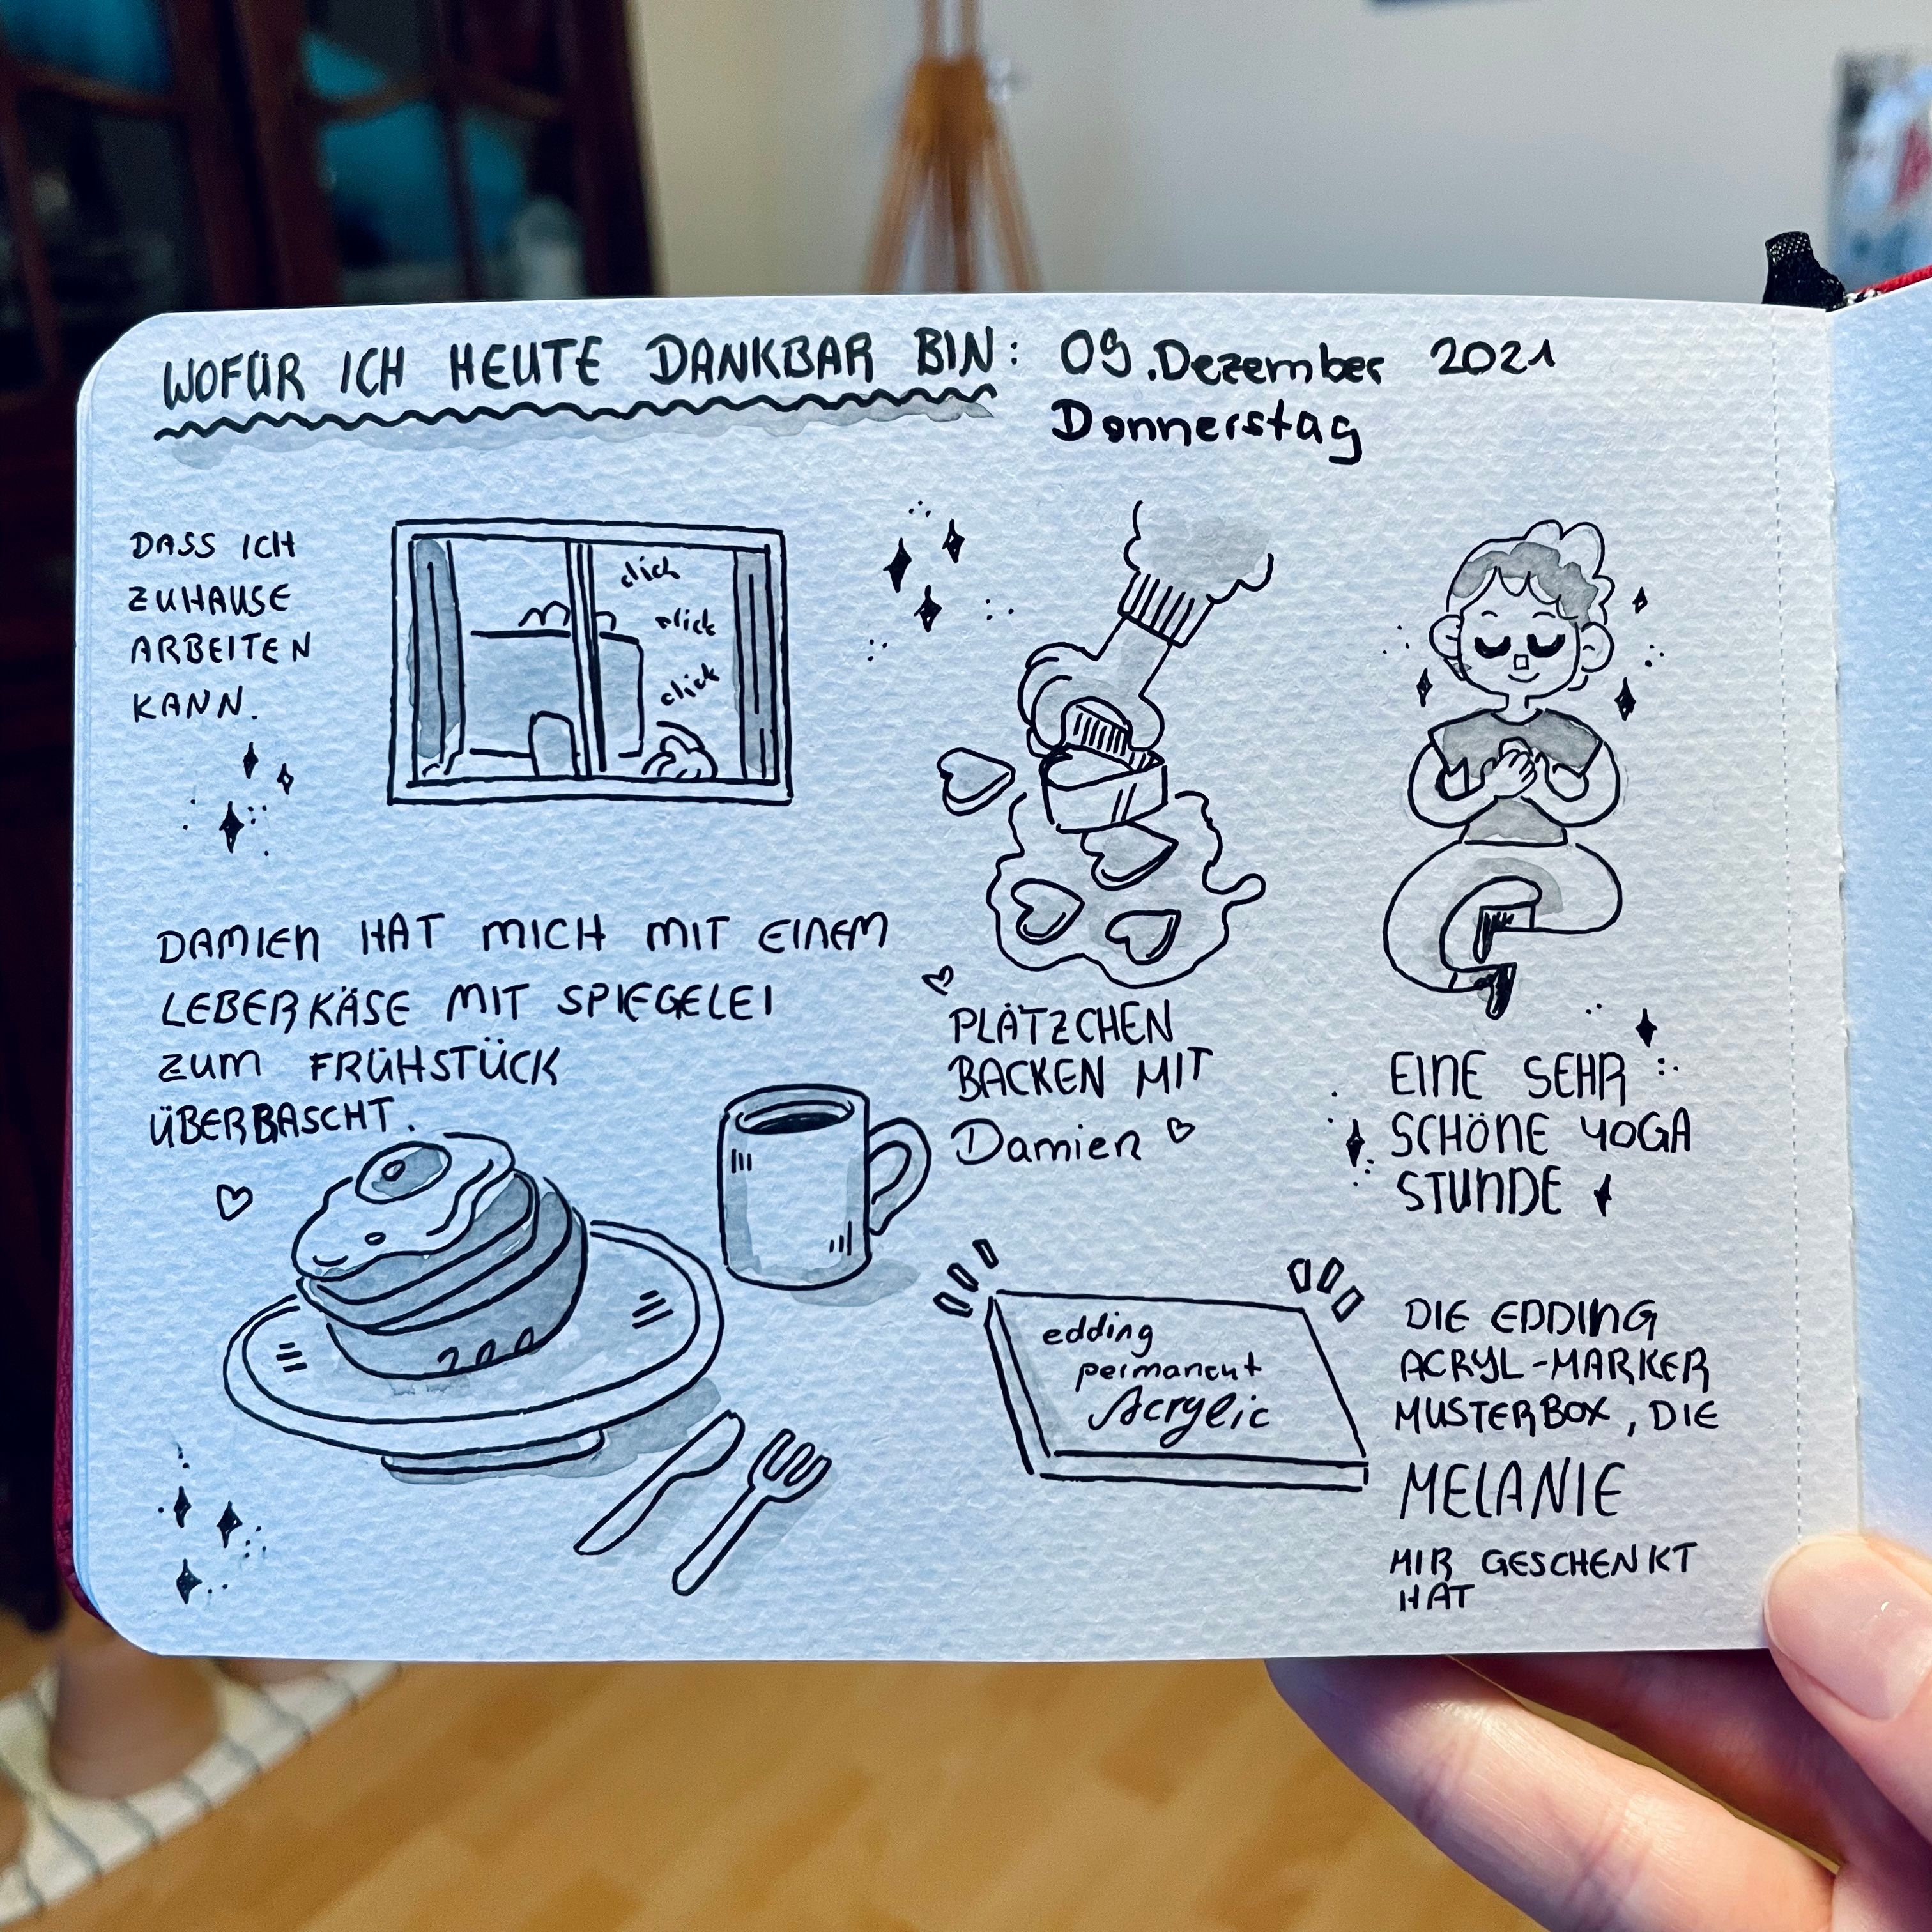 WOFÜR ICH HEUTE DANKBAR BIN: 09. Dezember 2021
Donnerstag
DASS ICH
ZUHAUSE
ARBEITEN
KANN.
click
click
click
DAMIEN HAT MICH MIT EINEM
LEBERKÄSE MIT SPIEGELEI
ZUM FRÜHSTÜCK
ÜBERRASCHT.
PLÄTZCHEN
BACKEN MIT
Damien
EINE SEHR
SCHÖNE YOGA
STUNDE
edding
permanent
Acrylic
DIE EDDING
ACRYL-MARKER
MUSTERBOX, DIE
MELANIE
MIR GESCHENKT
HAT